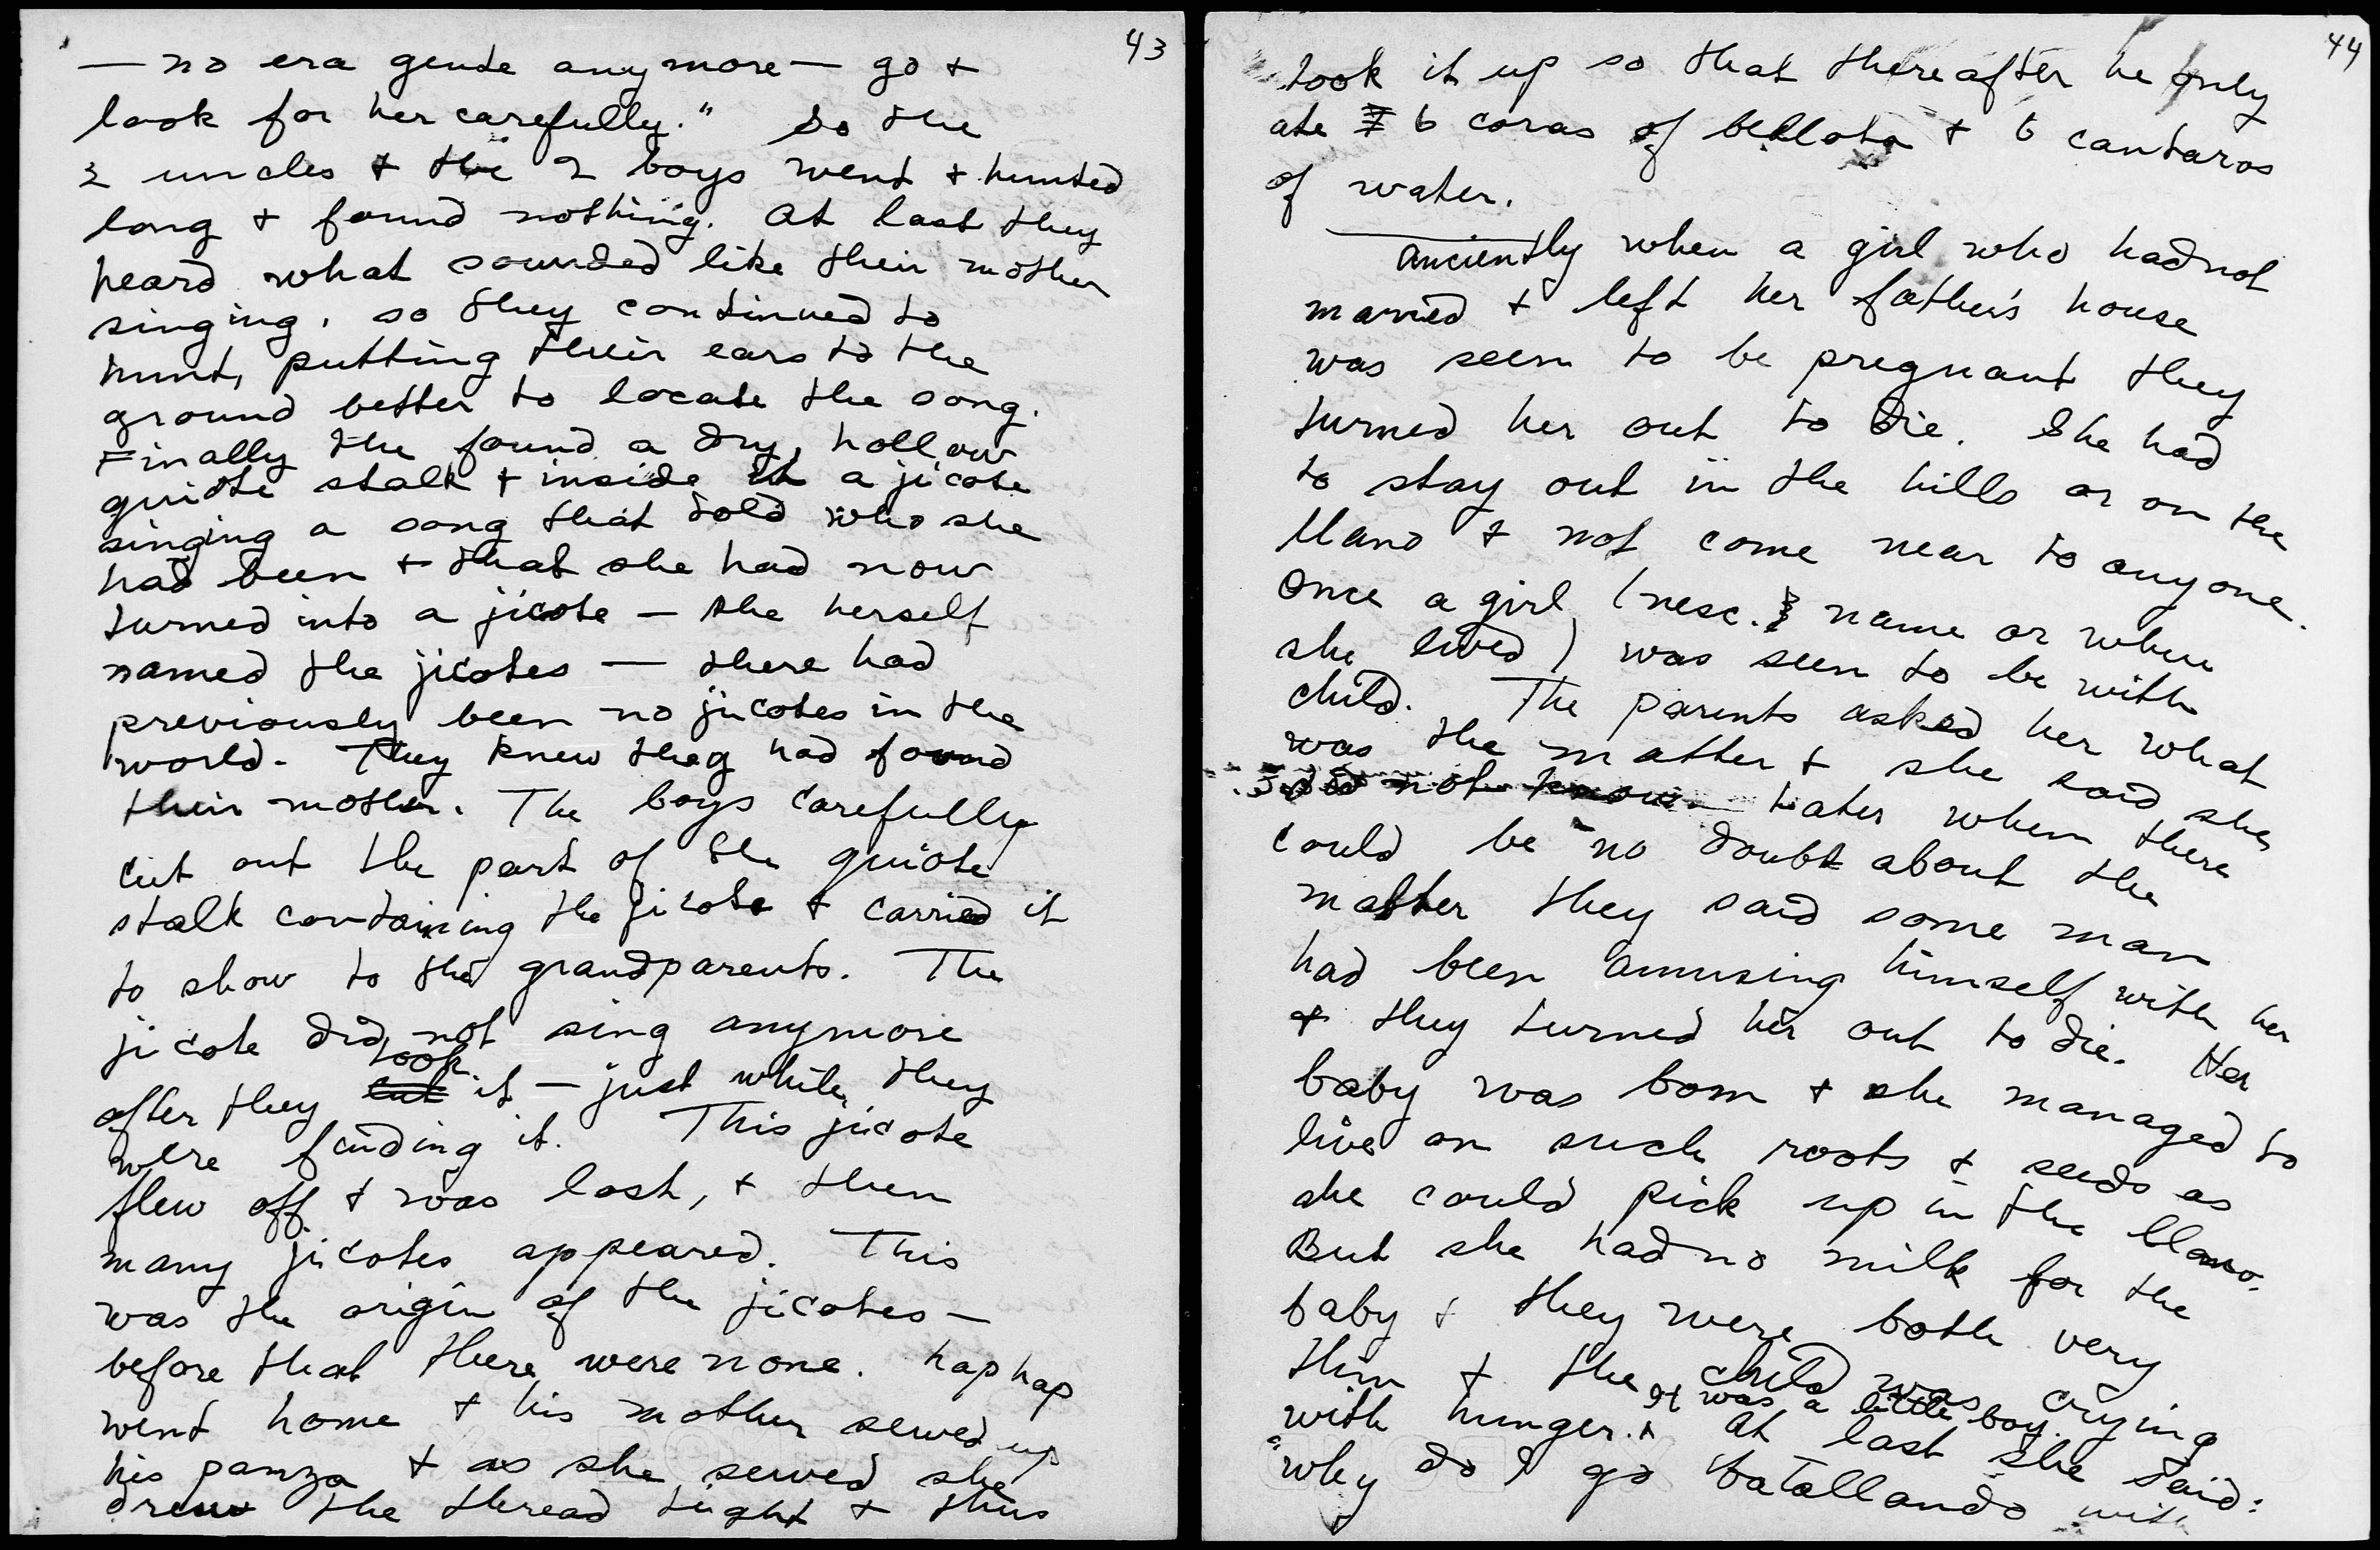 43
— no era gente anymore — go +
look for her carefully." So the
2 uncles + the 2 boys went + hunted
long + found nothing. At last they
heard what sounded like their mother
singing, so they continued to
hunt, putting their ears to the
ground better to locate the song.
Finally the found a dry, hollow
quiote stalk + inside it a jicote
singing a song that told who she
had been + that she had now
turned into a jicote — she herself
named the jicotes — there had
previously been no jicotes in the
world. They knew they had found
their mother. The boys carefully
cut out the part of the quiote
stalk containing the jicote + carried it
to show to the grandparents. The
jicote did not sing anymore
after they cut took it — just while they
were finding it. This jicote
flew off + was lost, + then
many jicotes appeared. This
was the origin of the jicotes —
before that there were none. hap hap
went home + his mother sewed up
his panza + as she sewed she
drew the thread tight + thus
44
took it up so that thereafter he only
ate 6 coras of bellota + 6 cantaros
of water.
Anciently when a girl who had not
married + left her father's house
was seen to be pregnant they
turned her out to die. She had
to stay out in the hills or on the
llano + not come near to anyone.
Once a girl (nesc. name or where
she lived) was seen to be with
child. The parents asked her what
was the matter + she said she
did not know. Later when there
could be no doubt about the
matter they said some man
had been amusing himself with her
+ they turned her out to die. Her
baby was born + she managed to
live on such roots + seeds as
she could pick up in the llano.
But she had no milk for the
baby + they were both very
thin + the child was crying
with hunger. It was a little boy. At last she said:
"why do I go batallando with